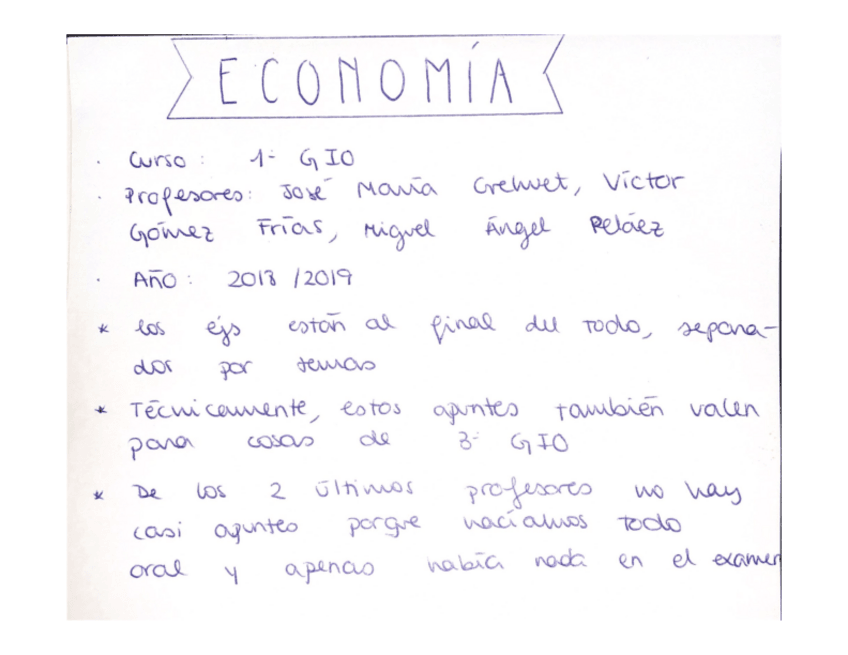 ECONOMÍA
· Curso: 1º GIO
· Profesores: José María Crehuet, Víctor
Gómez Frías, Miguel Ángel Peláez
· Año: 2018/2019
* los ejs están al final del todo, separa-
dos por temas
* Técnicamente, estos apuntes también valen
para cosas de 3º GIO
* De los 2 últimos profesores no hay
casi apuntes porque hacíamos todo
oral y apenas había nada en el examen